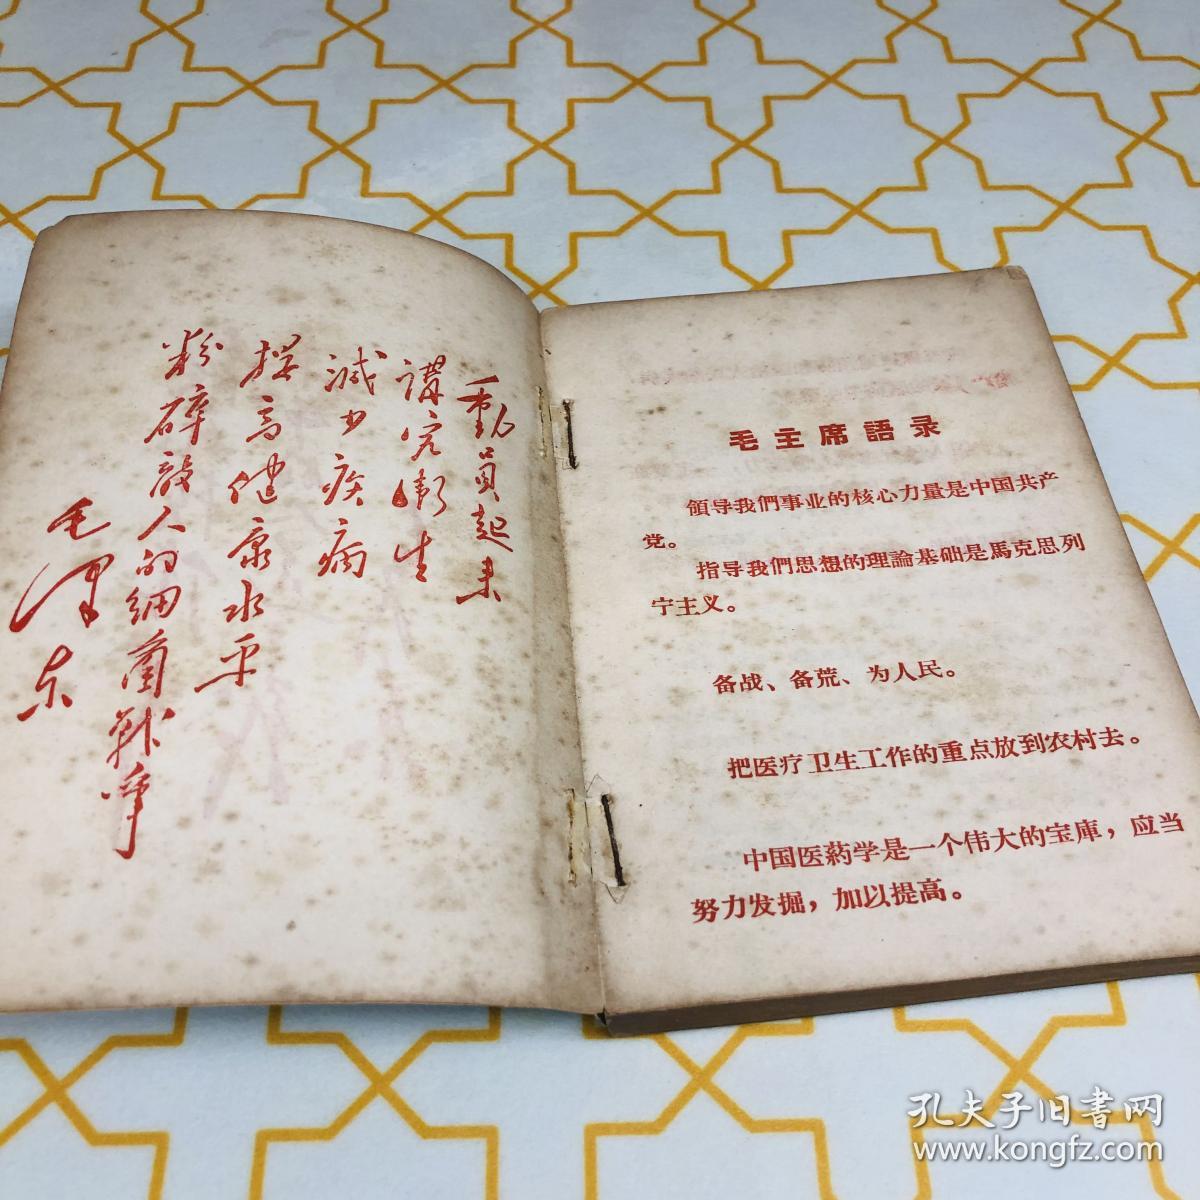 動員起来
講究衛生
減少疾病
提高健康水平
粉碎敌人的细菌戰争
毛澤东
毛主席語录
領导我們事业的核心力量是中国共产
党。
指导我們思想的理論基础是馬克思列
宁主义。
备战、备荒、为人民。
把医疗卫生工作的重点放到农村去。
中国医葯学是一个伟大的宝庫，应当
努力发掘，加以提高。
孔夫子旧書网
www.kongfz.com